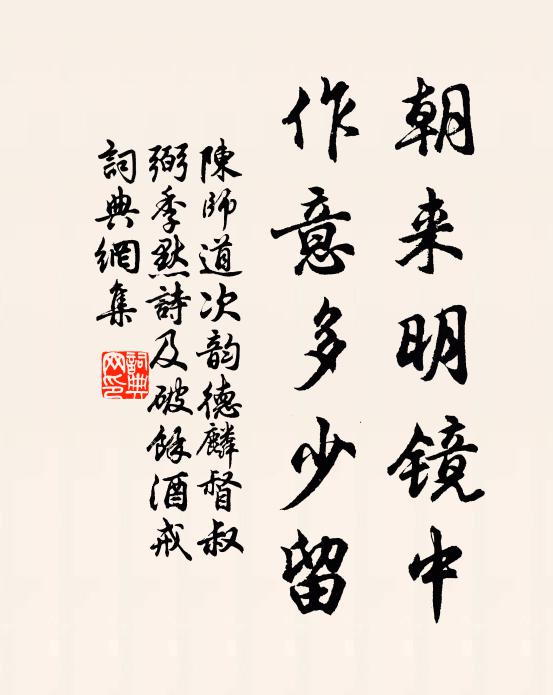 朝来明镜中
作意多少留
陳師道次韵德麟督叔
弼季默詩及破餘酒戒
詞典網集
詞典
网印